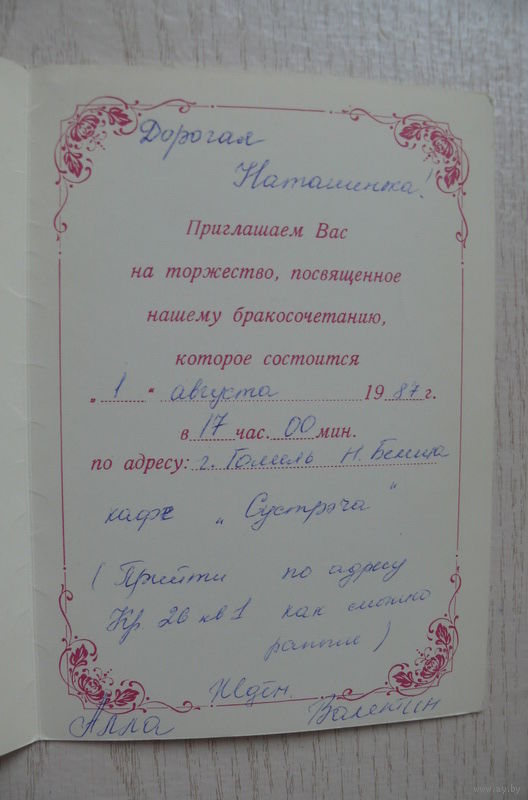 Дорогая
Наташинка!
Приглашаем Вас
на торжество, посвященное
нашему бракосочетанию,
которое состоится
„ 1 “ августа 1987 г.
в 17 час. 00 мин.
по адресу: г. Гомель Н. Белица
кафе „Сустрэча“
(Прийти по адресу
Кр 26 кв 1 как можно
раньше)
Ждём.
Алла Валентин
www.ay.by